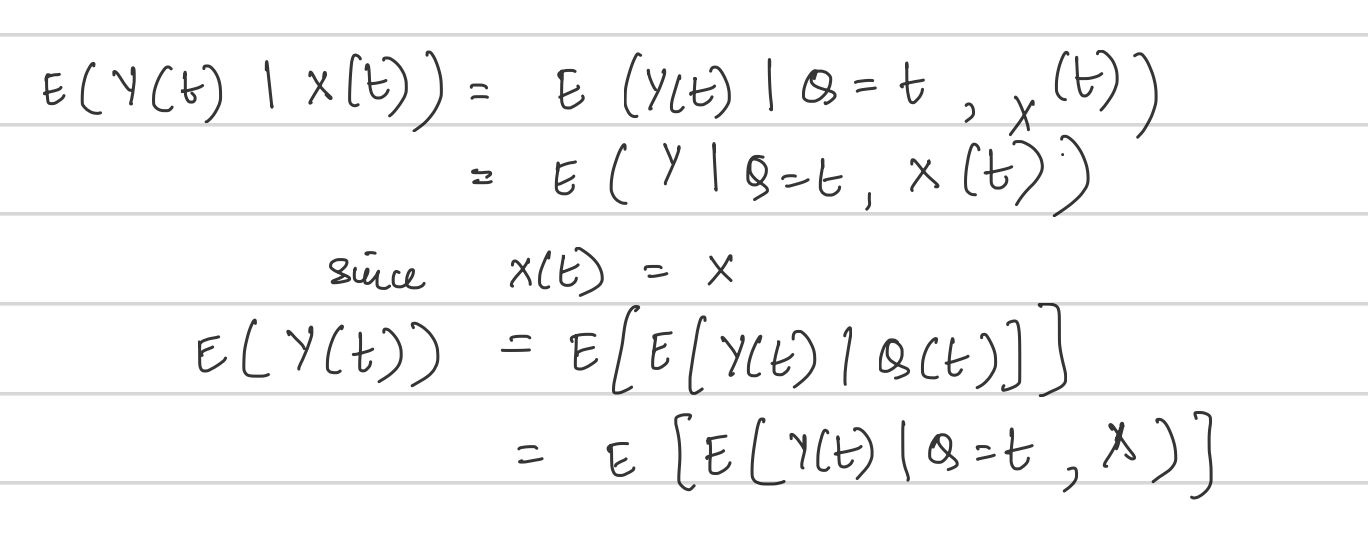 E(Y(t) | X(t)) = E (Y(t) | Q = t , X(t))
= E ( Y | Q=t, X(t))
since X(t) = X
E(Y(t)) = E[E[Y(t) | Q(t)]]
= E [E[Y(t) | Q=t, X)]